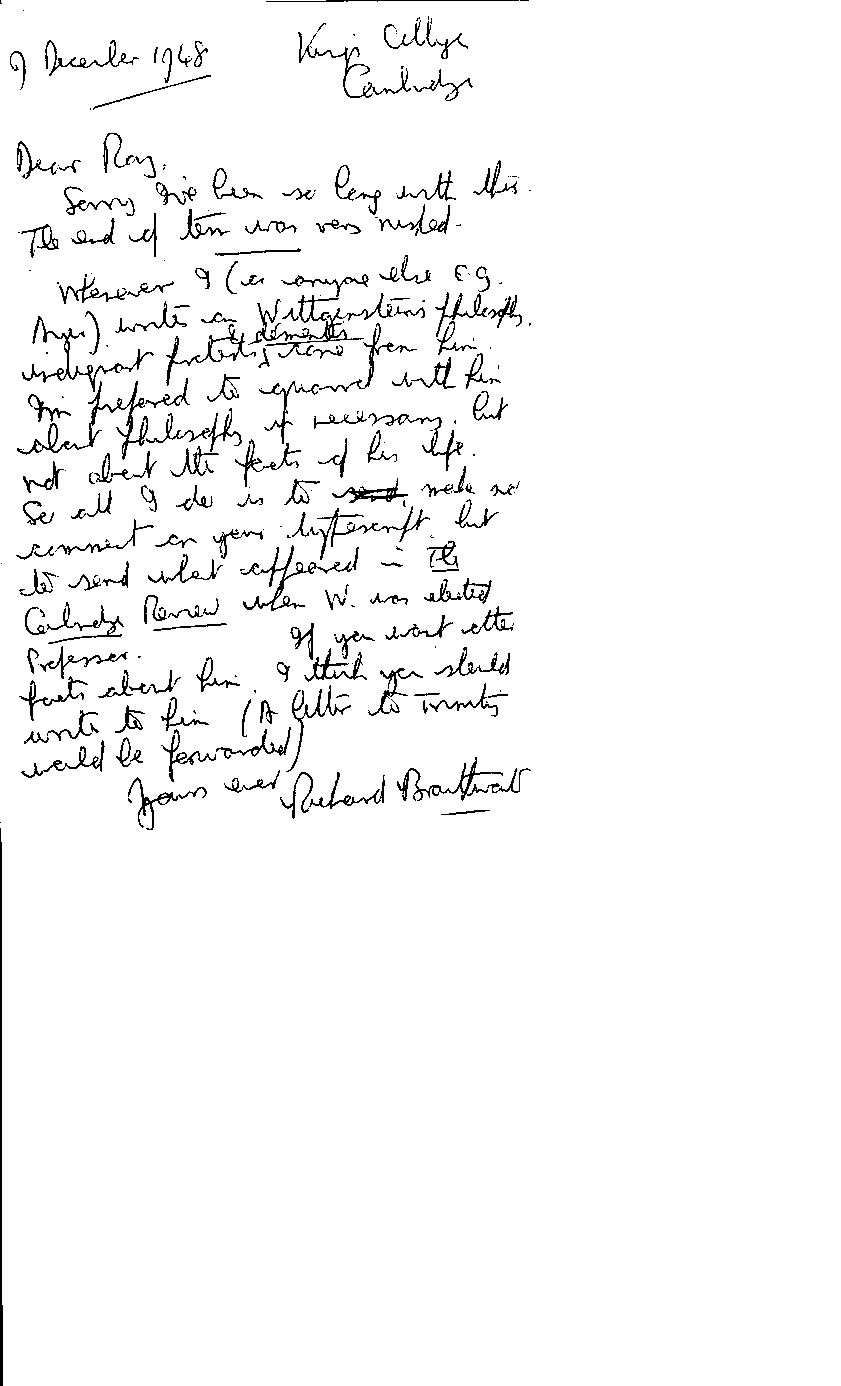 9 December 1948
King's College
Cambridge
Dear Ray,
Sorry I've been so long with this.
The end of term was very rushed.
Whenever I (or anyone else e.g.
Ayer) write on Wittgenstein's philosophy,
indignant protests & démentis come from him.
I'm prepared to quarrel with him
about philosophy if necessary, but
not about the facts of his life.
So all I do is to make no
comment on your typescript, but
to send what appeared in The
Cambridge Review when W. was elected
Professor. If you want other
facts about him, I think you should
write to him (A letter to Trinity
would be forwarded)
Yours ever Richard Braithwaite